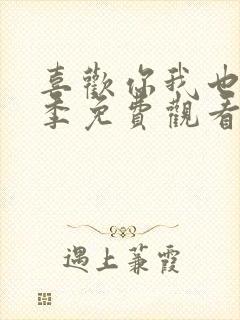 喜歡你我也
季免費觀看
遇上蒹霞